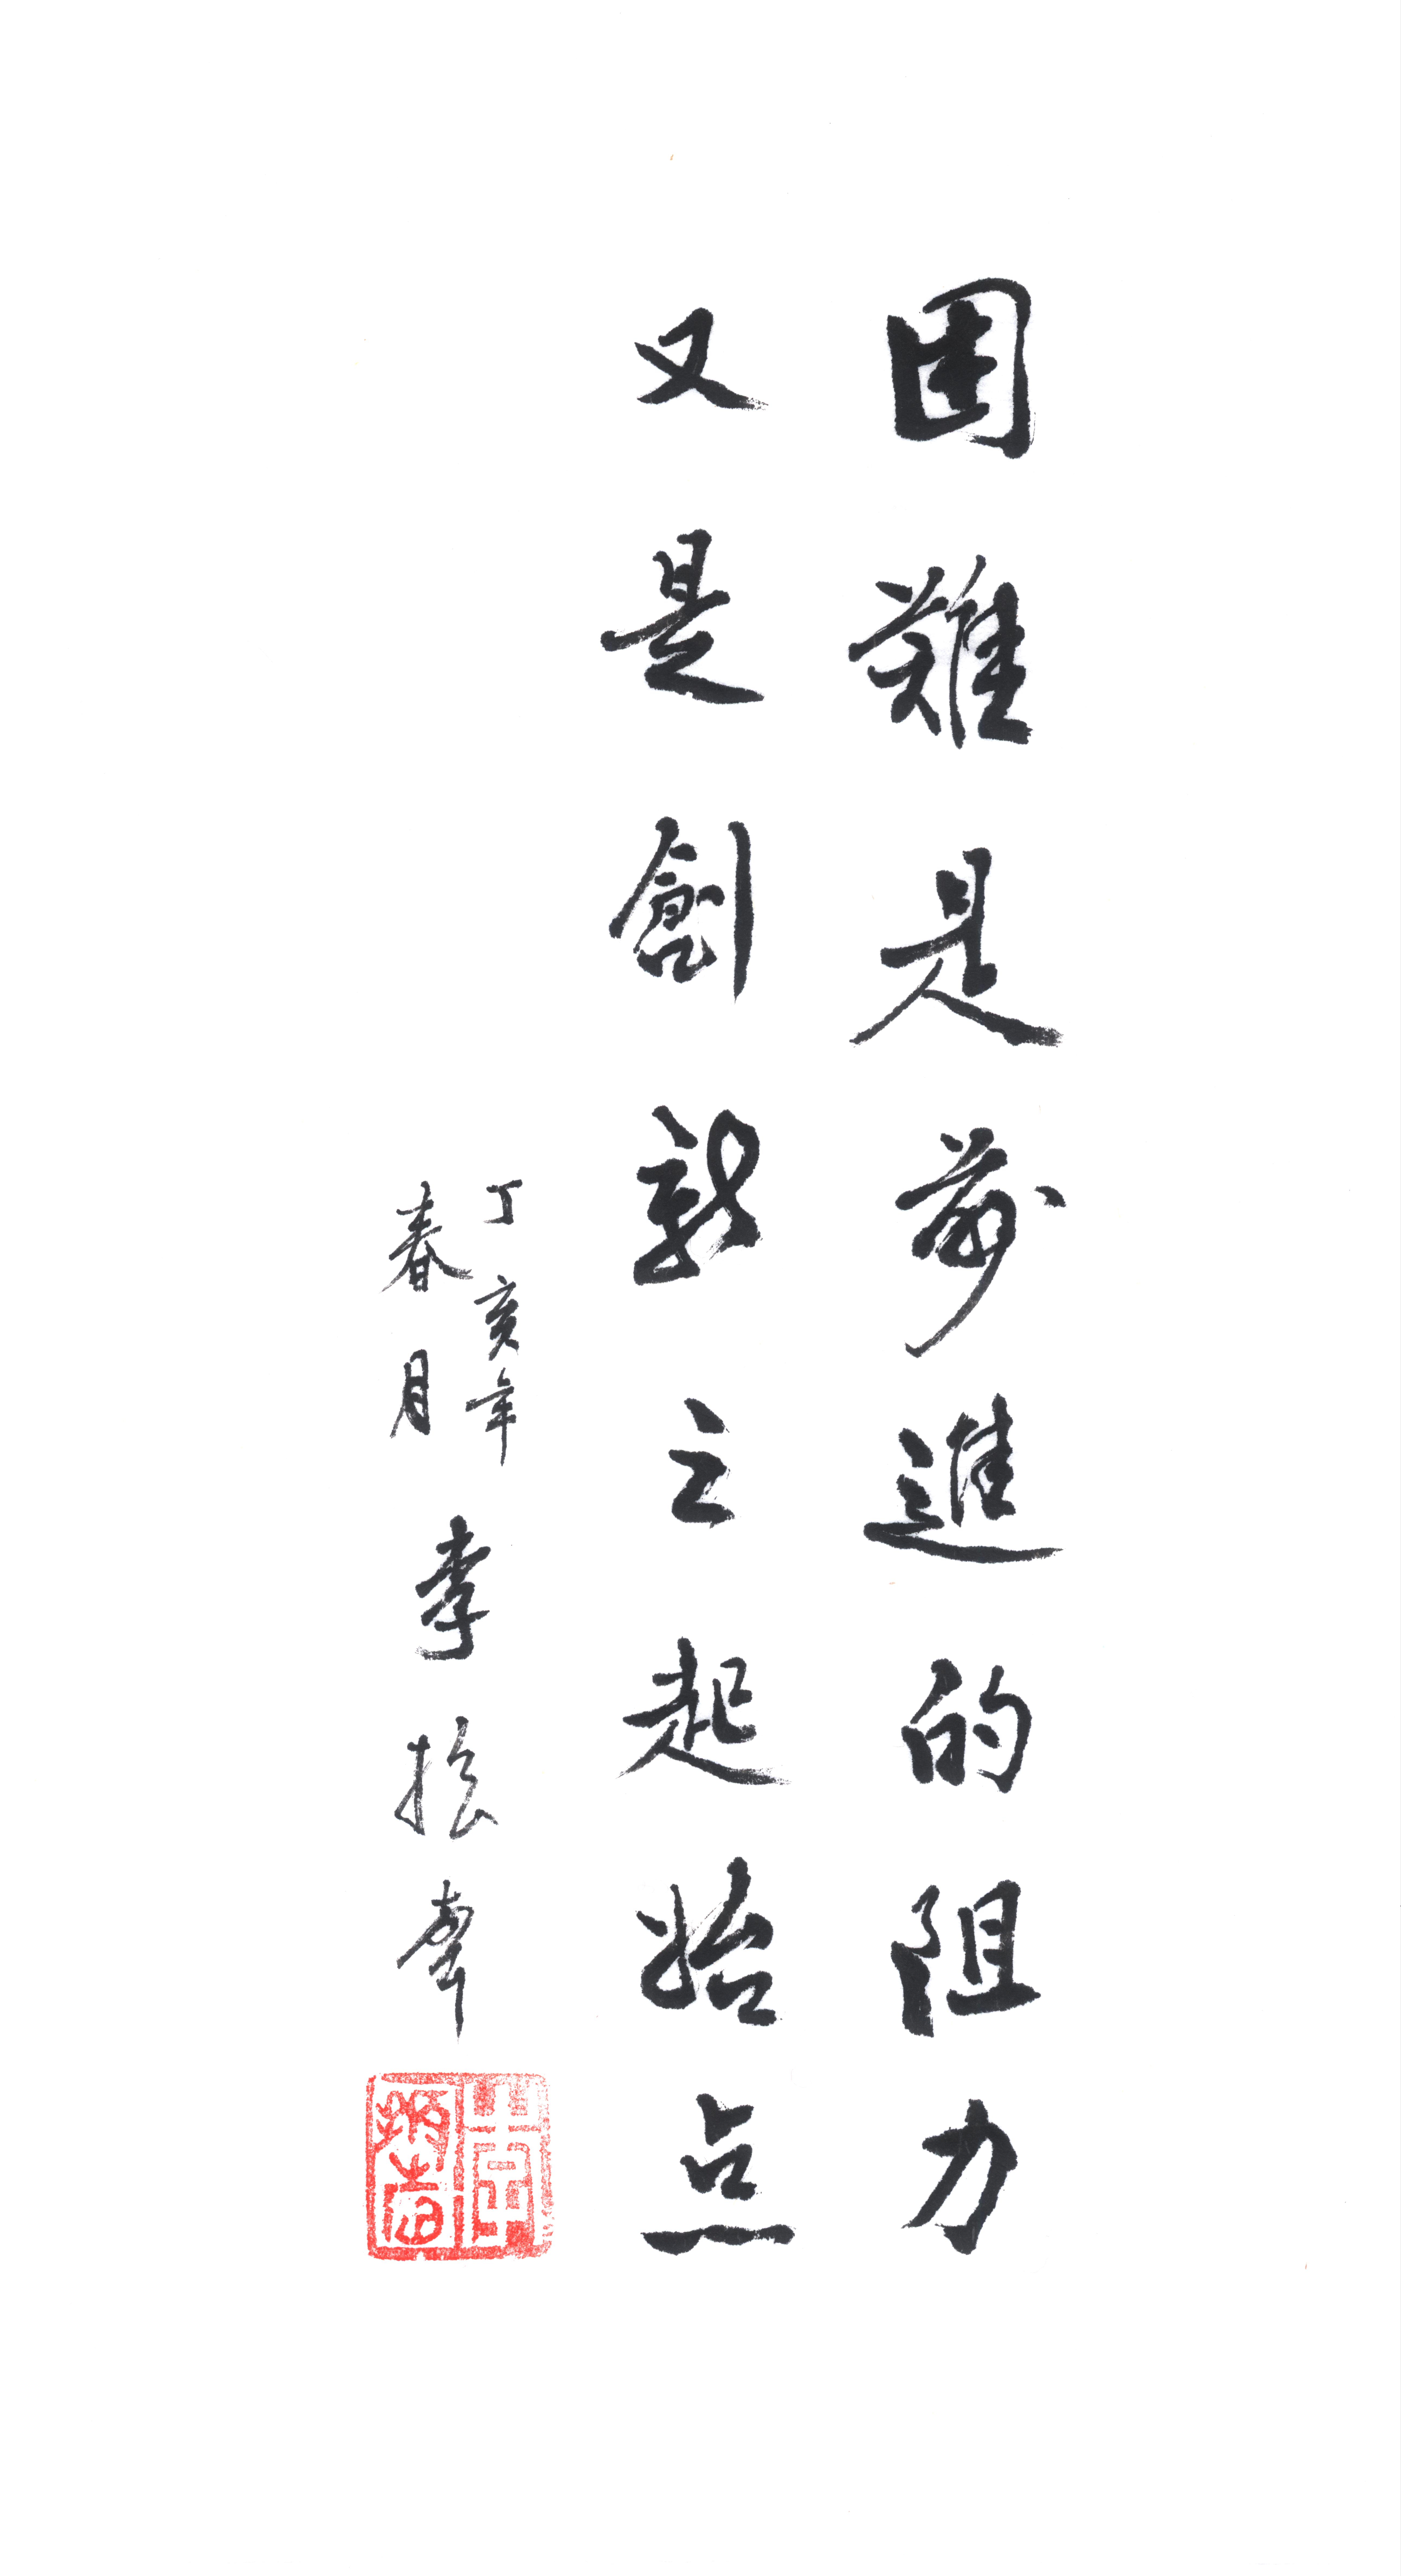 困難是前進的阻力
又是創新之起始点
丁亥年
春月
李振聲